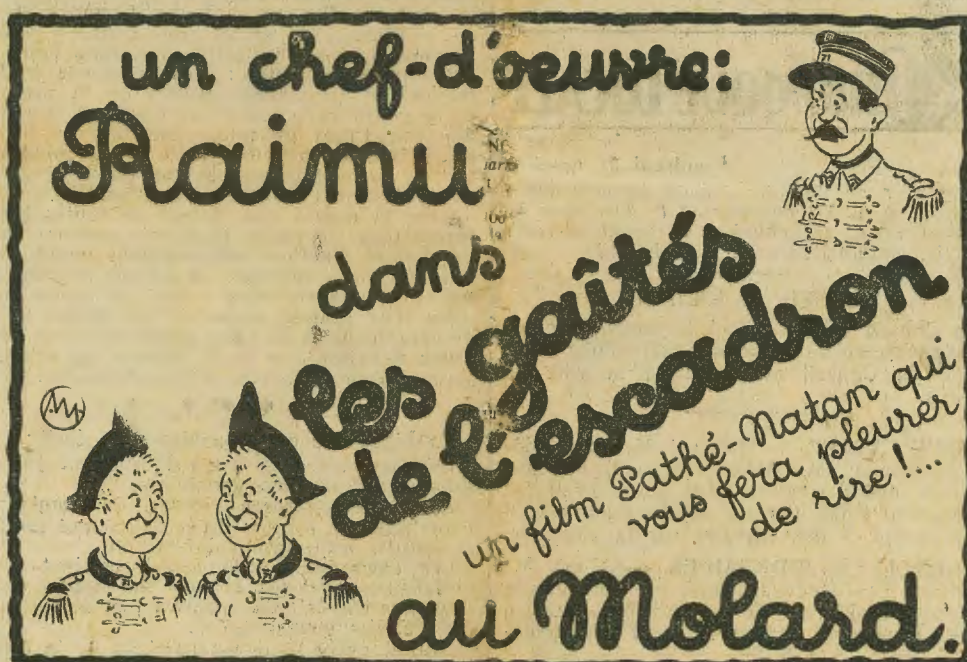 un chef-d'oeuvre:
Raimu
dans
les gaîtés
de l'escadron
un film Pathé-Natan qui
vous fera pleurer
de rire !...
au Molard.